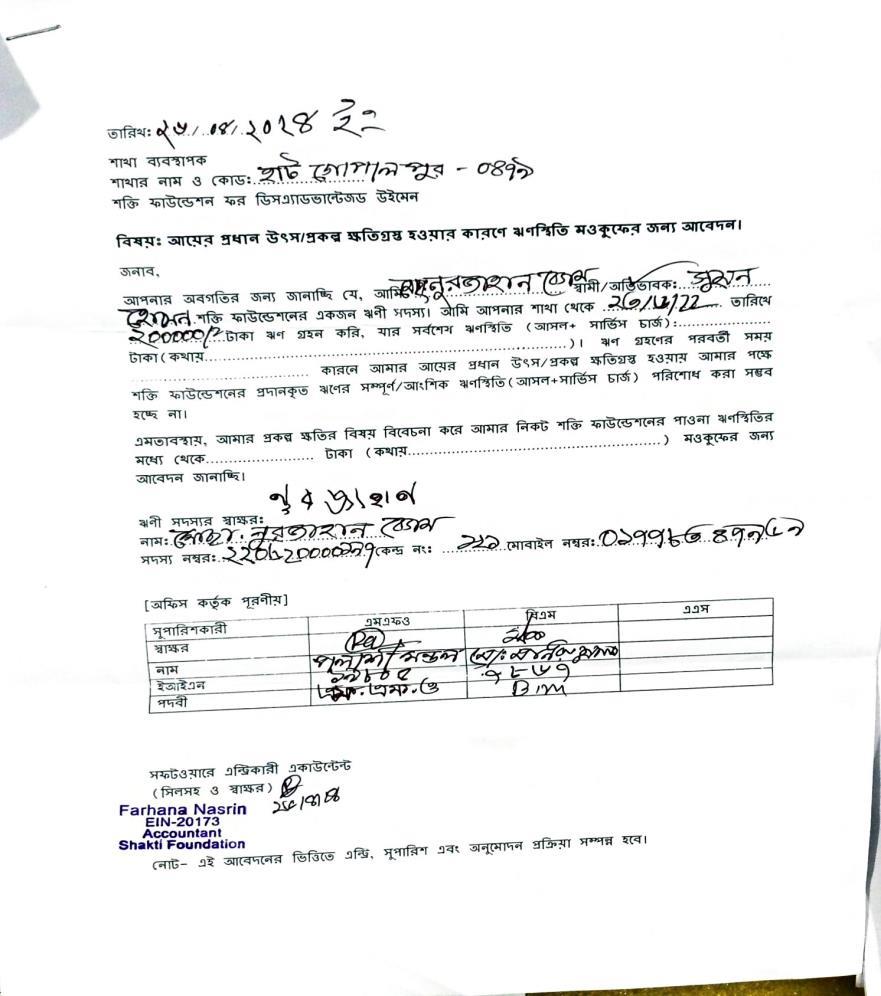 তারিখ: ২৫/.০৪/.২০২৪ ইং
শাখা ব্যবস্থাপক
শাখার নাম ও কোড: হাট গোপালপুর - ০৪৭৯
শক্তি ফাউন্ডেশন ফর ডিসএ্যাডভান্টেজড উইমেন
বিষয়: আয়ের প্রধান উৎস/প্রকল্প ক্ষতিগ্রস্ত হওয়ার কারণে ঋণস্থিতি মওকুফের জন্য আবেদন।
জনাব,
আপনার অবগতির জন্য জানাচ্ছি যে, আমি নুরজাহান বেগম স্বামী/অভিভাবক: সুমন
হোসেন শক্তি ফাউন্ডেশনের একজন ঋণী সদস্য। আমি আপনার শাখা থেকে তারিখে
২০০০০০/= টাকা ঋণ গ্রহন করি, যার সর্বশেষ ঋণস্থিতি (আসল+ সার্ভিস চার্জ):....................
টাকা (কথায়........................................................................)। ঋণ গ্রহণের পরবর্তী সময়
............................ কারনে আমার আয়ের প্রধান উৎস/প্রকল্প ক্ষতিগ্রস্ত হওয়ায় আমার পক্ষে
শক্তি ফাউন্ডেশনের প্রদানকৃত ঋণের সম্পূর্ণ/আংশিক ঋণস্থিতি(আসল+সার্ভিস চার্জ) পরিশোধ করা সম্ভব
হচ্ছে না।
এমতাবস্থায়, আমার প্রকল্প ক্ষতির বিষয় বিবেচনা করে আমার নিকট শক্তি ফাউন্ডেশনের পাওনা ঋণস্থিতির
মধ্যে থেকে...................... টাকা (কথায়..................................................) মওকুফের জন্য
আবেদন জানাচ্ছি।
নুরজাহান
ঋণী সদস্যর স্বাক্ষর:
নাম: মোছা. নুরজাহান বেগম
সদস্য নম্বর: কেন্দ্র নং: মোবাইল নম্বর:
[অফিস কর্তৃক পূরনীয়]
সুপারিশকারী এমএফও বিএম এএস
স্বাক্ষর
নাম পলাশী মন্ডল
ইআইএন
পদবী এম.এফ.ও BM
সফটওয়ারে এন্ট্রিকারী একাউন্টেন্ট
(সিলসহ ও স্বাক্ষর)
Farhana Nasrin
EIN-20173
Accountant
Shakti Foundation
নোট- এই আবেদনের ভিত্তিতে এন্ট্রি, সুপারিশ এবং অনুমোদন প্রক্রিয়া সম্পন্ন হবে।